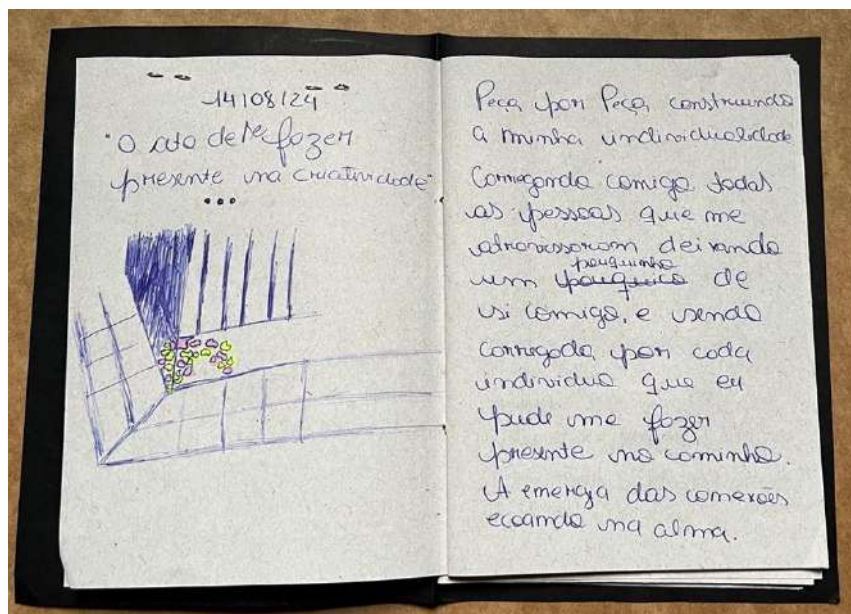 14/08/24
"O ato de me fazer
presente na criatividade"
...
Peça por Peça, construindo
a minha individualidade
Carregando comigo todas
as pessoas que me
atravessaram deixando
pouquinho
um pouquico de
si comigo, e sendo
carregada por cada
individuo que eu
pude me fazer
presente no caminho.
A energia das conexões
ecoando na alma.